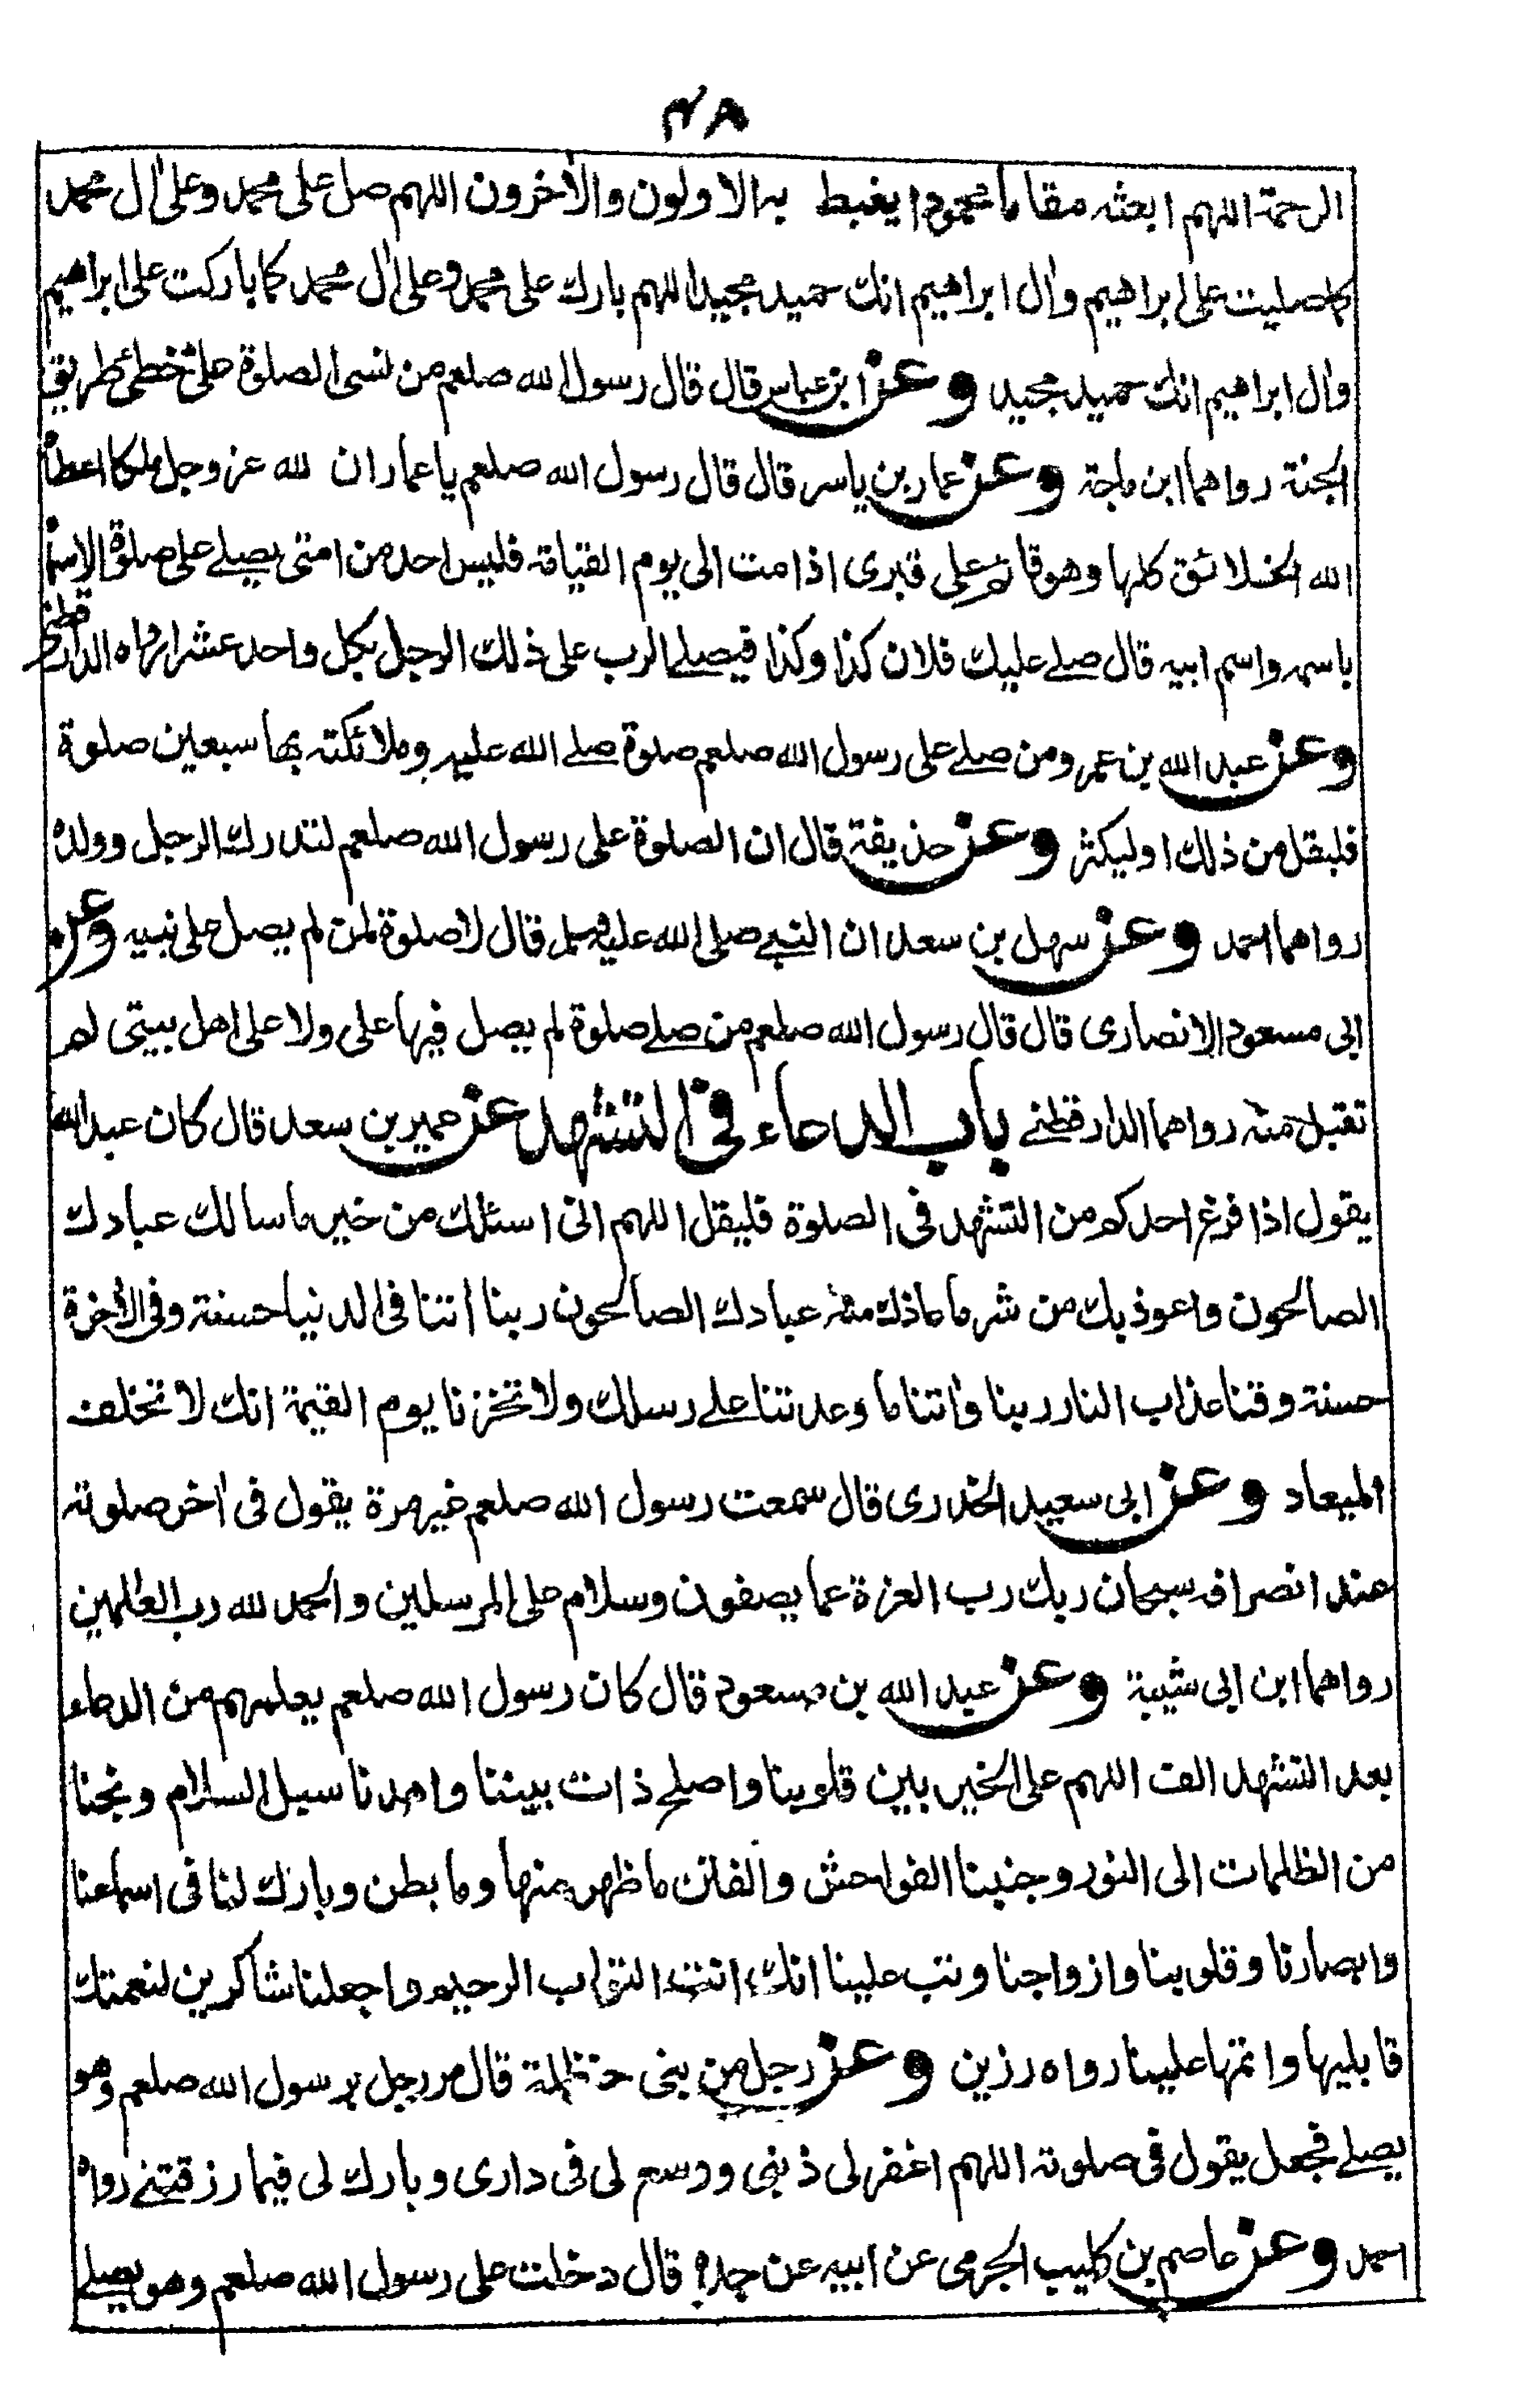 ٤٨
الرحمة اللهم ابعثه مقاما محمودا يغبط به الاولون والاٰخرون اللهم صل على محمد وعلى اٰل محمد
كما صليت على ابراهيم واٰل ابراهيم انك حميد مجيد اللهم بارك على محمد وعلى اٰل محمد كما باركت على ابراهيم
واٰل ابراهيم انك حميد مجيد وعن ابن عباس قال قال رسول الله صلعم من نسى الصلوة على خطئ طريق
الجنة رواهما ابن ماجة وعن عمار بن ياسر قال قال رسول الله صلعم يا عمار ان لله عز وجل ملكا اعطاه
الله الخلائق كلها وهو قائم على قبرى اذا مت الى يوم القيامة فليس احد من امتى يصلے على صلوة الا سماه
باسمه واسم ابيه قال صلے عليك فلان كذا وكذا فيصلے الرب على ذلك الرجل بكل واحد عشرا رواه الدارقطنے
وعن عبد الله بن عمر ومن صلے على رسول الله صلعم صلوة صلے الله عليه وملائكته بها سبعين صلوة
فليقل من ذلك او ليكثر وعن حذيفة قال ان الصلوة على رسول الله صلعم لتدرك الرجل وولده
رواهما احمد وعن سهل بن سعد ان النبے صلى الله عليه وسلم قال لا صلوة لمن لم يصل على نبيه وعن
ابى مسعود الانصارى قال قال رسول الله صلعم من صلے صلوة لم يصل فيها على ولا على اهل بيتى لم
تقبل منه رواهما الدارقطنے باب الدعاء فى التشهد عن عمير بن سعد قال كان عبد الله
يقول اذا فرغ احدكم من التشهد فى الصلوة فليقل اللهم انى اسئلك من خير ما سالك عبادك
الصالحون واعوذ بك من شر ما عاذك منه عبادك الصالحون ربنا اٰتنا فى الدنيا حسنة وفى الاٰخرة
حسنة وقنا عذاب النار ربنا واٰتنا ما وعدتنا علے رسلك ولا تخزنا يوم القيمة انك لا تخلف
الميعاد وعن ابى سعيد الخدرى قال سمعت رسول الله صلعم غير مرة يقول فى اٰخر صلوته
عند انصرافه سبحان ربك رب العزة عما يصفون وسلام على المرسلين والحمد لله رب العٰلمين
رواهما ابن ابى شيبة وعن عبد الله بن مسعود قال كان رسول الله صلعم يعلمهم من الدعاء
بعد التشهد الف اللهم على الخير بين قلوبنا واصلح ذات بيننا واهدنا سبل السلام ونجنا
من الظلمات الى النور وجنبنا الفواحش والفتن ما ظهر منها وما بطن وبارك لنا فى اسماعنا
وابصارنا وقلوبنا وازواجنا وتب علينا انك انت التواب الرحيم واجعلنا شاكرين لنعمتك
قابليها واتمها علينا رواه رزين وعن رجل من بنى حنظلة قال مر رجل برسول الله صلعم وهو
يصلے فجعل يقول فى صلوته اللهم اغفر لى ذنبى ووسع لى فى دارى وبارك لى فيما رزقتنے رواه
احمد وعن عاصم بن كليب الجرمى عن ابيه عن جده قال دخلت على رسول الله صلعم وهو يصلے